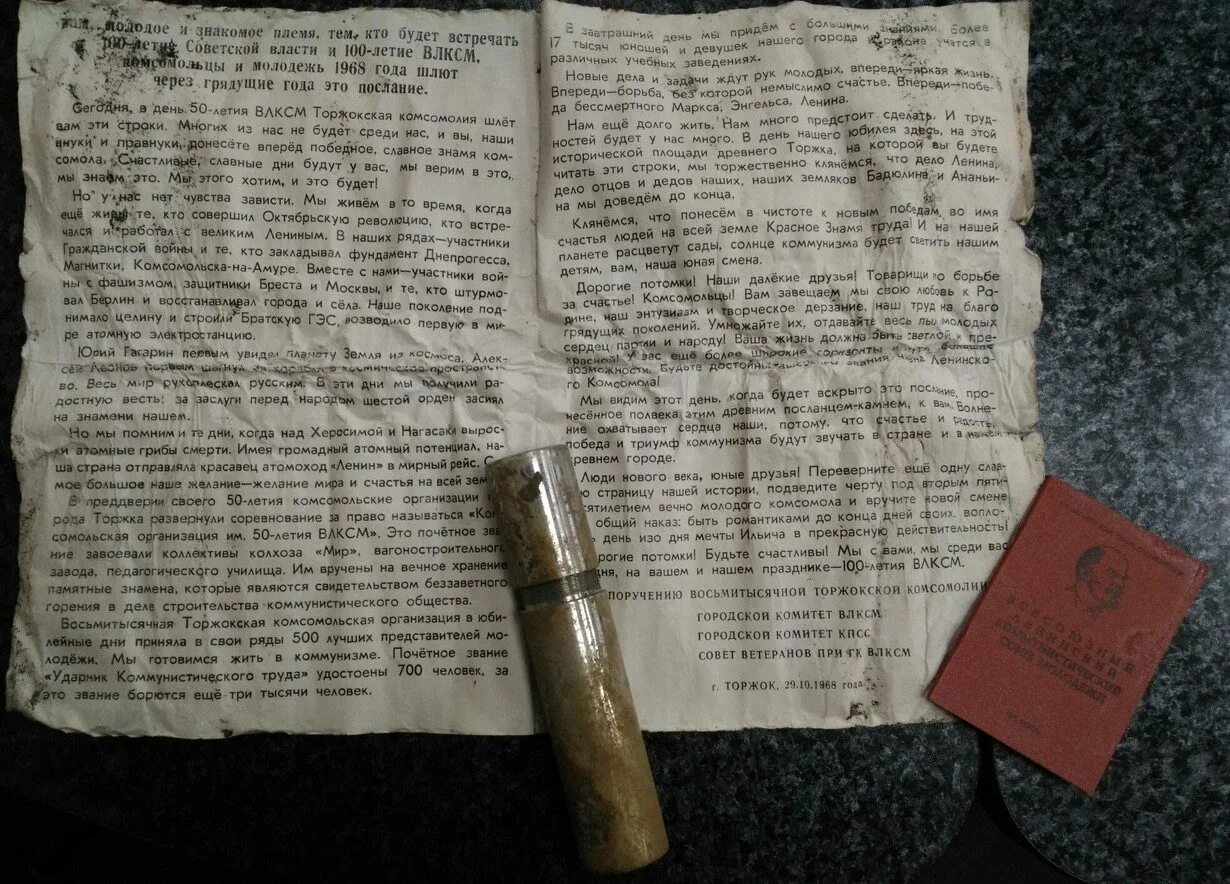 Вам, молодое и знакомое племя, тем, кто будет встречать
100-летие Советской власти и 100-летие ВЛКСМ,
комсомольцы и молодежь 1968 года шлют
через грядущие года это послание.
Сегодня, в день 50-летия ВЛКСМ Торжокская комсомолия шлёт
вам эти строки. Многих из нас не будет среди нас, и вы, наши
внуки и правнуки, донесёте вперёд победное, славное знамя ком-
сомола. Счастливые, славные дни будут у вас, мы верим в это,
мы знаем это. Мы этого хотим, и это будет!
Но у нас нет чувства зависти. Мы живём в то время, когда
ещё живы те, кто совершил Октябрьскую революцию, кто встре-
чался и работал с великим Лениным. В наших рядах—участники
Гражданской войны и те, кто закладывал фундамент Днепрогесса,
Магнитки, Комсомольска-на-Амуре. Вместе с нами—участники вой-
ны с фашизмом, защитники Бреста и Москвы, и те, кто штурмо-
вал Берлин и восстанавливал города и сёла. Наше поколение под-
нимало целину и строили Братскую ГЭС, возводило первую в ми-
ре атомную электростанцию.
Юрий Гагарин первым увидел планету Земля из космоса, Алек-
сей Леонов первым шагнул из корабля в космическое пространст-
во. Весь мир рукоплескал русским. В эти дни мы получили ра-
достную весть: за заслуги перед народом шестой орден засиял
на знамени нашем.
Но мы помним и те дни, когда над Херосимой и Нагасаки вырос-
ки атомные грибы смерти. Имея громадный атомный потенциал, на-
ша страна отправляла красавец атомоход «Ленин» в мирный рейс. С
мое большое наше желание—желание мира и счастья на всей зем
В преддверии своего 50-летия комсомольские организации
рода Торжка развернули соревнование за право называться «Ко
сомольская организация им. 50-летия ВЛКСМ». Это почётное зва
ние завоевали коллективы колхоза «Мир», вагоностроительного
завода, педагогического училища. Им вручены на вечное хранение
памятные знамена, которые являются свидетельством беззаветного
горения в деле строительства коммунистического общества.
Восьмитысячная Торжокская комсомольская организация в юби-
лейные дни приняла в свои ряды 500 лучших представителей мо-
лодёжи. Мы готовимся жить в коммунизме. Почётное звание
«Ударник Коммунистического труда» удостоены 700 человек, за
это звание борются ещё три тысячи человек.
В завтрашний день мы придём с большими знаниями, более
17 тысяч юношей и девушек нашего города и района учатся в
различных учебных заведениях.
Новые дела и задачи ждут рук молодых, впереди—яркая жизнь.
Впереди—борьба, без которой немыслимо счастье. Впереди—побе-
да бессмертного Маркса, Энгельса, Ленина.
Нам ещё долго жить. Нам много предстоит сделать. И труд-
ностей будет у нас много. В день нашего юбилея здесь, на этой
исторической площади древнего Торжка, на которой вы будете
читать эти строки, мы торжественно клянёмся, что дело Ленина,
дело отцов и дедов наших, наших земляков Бадюлина и Ананьи-
на мы доведём до конца.
Клянёмся, что понесём в чистоте к новым победам во имя
счастья людей на всей земле Красное Знамя труда! И на нашей
планете расцветут сады, солнце коммунизма будет светить нашим
детям, вам, наша юная смена.
Дорогие потомки! Наши далёкие друзья! Товарищи по борьбе
за счастье! Комсомольцы! Вам завещаем мы свою любовь к Ро-
дине, наш энтузиазм и творческое дерзание, наш труд на благо
грядущих поколений. Умножайте их, отдавайте весь пыл молодых
сердец партии и народу! Ваша жизнь должна быть светлой и пре-
красной! У вас ещё более широкие горизонты и пути, большие
возможности. Будьте достойны высокого звания члена Ленинско-
го Комсомола!
Мы видим этот день, когда будет вскрыто это послание, про-
несённое полвека этим древним посланцем-камнем, к вам. Волне-
ние охватывает сердца наши, потому, что счастье и радость,
победа и триумф коммунизма будут звучать в стране и в нашем
древнем городе.
Люди нового века, юные друзья! Переверните ещё одну слав-
ю страницу нашей истории, подведите черту под вторым пяти-
сятилетием вечно молодого комсомола и вручите новой смене
общий наказ: быть романтиками до конца дней своих, вопло-
день изо дня мечты Ильича в прекрасную действительность!
орогие потомки! Будьте счастливы! Мы с вами, мы среди вас
дня, на вашем и нашем празднике—100-летия ВЛКСМ.
ПОРУЧЕНИЮ ВОСЬМИТЫСЯЧНОЙ ТОРЖОКСКОЙ КОМСОМОЛИИ
ГОРОДСКОЙ КОМИТЕТ ВЛКСМ
ГОРОДСКОЙ КОМИТЕТ КПСС
СОВЕТ ВЕТЕРАНОВ ПРИ ГК ВЛКСМ
г. ТОРЖОК, 29.10.1968 года
ВСЕСОЮЗНЫЙ
ЛЕНИНСКИЙ
КОММУНИСТИЧЕСКИЙ
СОЮЗ МОЛОДЕЖИ